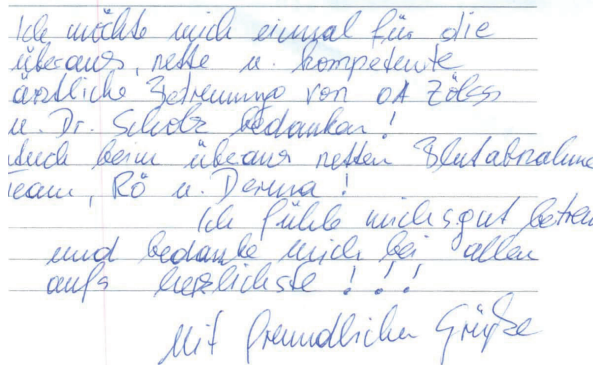 Ich möchte mich einmal für die
überaus, nette u. kompetente
ärztliche Betreuung von OA
u. Dr. Scholz bedanken!
Auch beim überaus netten Blutabnahme
Team, Rö u. Derma!
Ich fühle mich s. gut betreu
und bedanke mich bei allen
aufs herzlichste !!!
Mit freundlichen Grüße